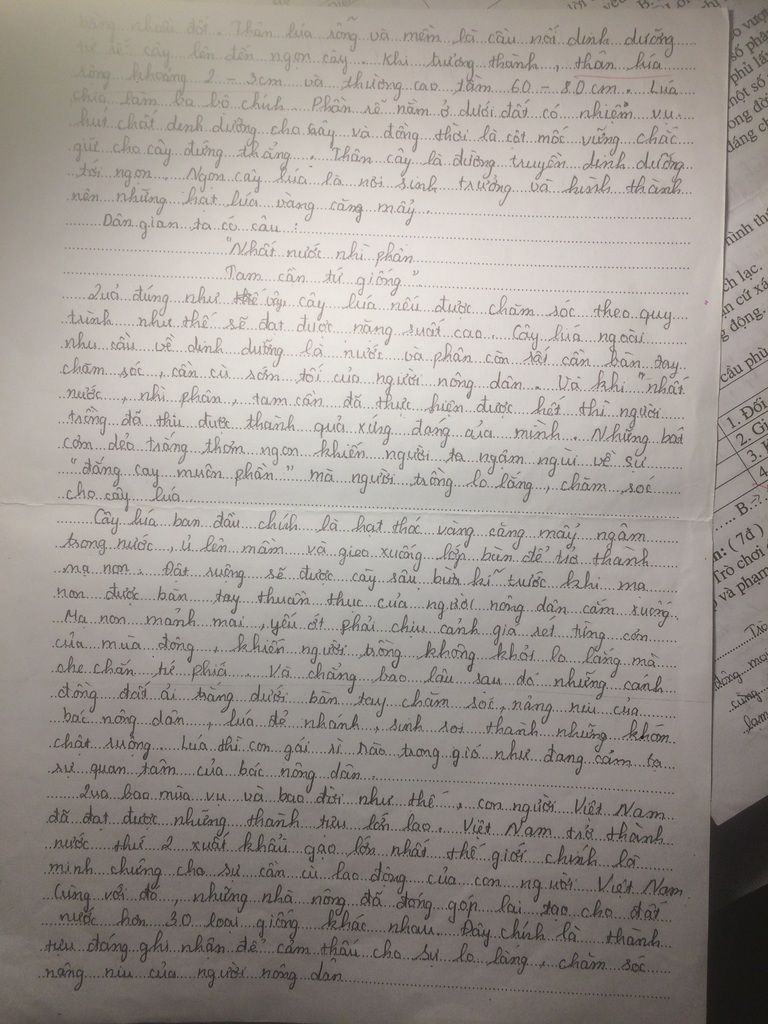 bằng nhiều đời. Thân lúa rỗng và mềm là cầu nối dinh dưỡng
từ rễ cây lên đến ngọn cây. Khi trưởng thành, thân lúa
rộng khoảng 2 - 3cm và thường cao tầm 60 - 80cm. Lúa
chia làm ba bộ chính. Phần rễ nằm ở dưới đất có nhiệm vụ
hút chất dinh dưỡng cho cây và đồng thời là cột mốc vững chắc
giữ cho cây đứng thẳng. Thân cây là đường truyền dinh dưỡng
tới ngọn. Ngọn cây lúa là nơi sinh trưởng và hình thành
nên những hạt lúa vàng căng mẩy.
Dân gian ta có câu:
"Nhất nước nhì phân
Tam cần tứ giống"
Quả đúng như vậy cây lúa nếu được chăm sóc theo quy
trình như thế sẽ đạt được năng suất cao. Cây lúa ngoài
nhu cầu về dinh dưỡng là nước và phân còn rất cần bàn tay
chăm sóc, cần cù sớm tối của người nông dân. Và khi "nhất
nước, nhì phân, tam cần đã thực hiện được hết thì người
trồng đã thu được thành quả xứng đáng của mình. Những bát
cơm dẻo trắng thơm ngon khiến người ta ngậm ngùi về sự
"đắng cay muôn phần" mà người trồng lo lắng, chăm sóc
cho cây lúa
Cây lúa ban đầu chính là hạt thóc vàng căng mẩy ngâm
trong nước, ủ lên mầm và gieo xuống lớp bùn để trở thành
mạ non. Đất ruộng sẽ được cày sâu bừa kĩ trước khi mạ
non được bàn tay thuần thục của người nông dân cắm xuống.
Mạ non mảnh mai, yếu ớt phải chịu cảnh giá rét từng cơn
của mùa đông, khiến người trồng không khỏi lo lắng mà
che chắn tứ phía. Và chẳng bao lâu sau đó những cánh
đồng đất ải trắng dưới bàn tay chăm sóc, nâng niu của
bác nông dân, lúa đẻ nhánh, sinh sôi thành những khóm
chật ruộng. Lúa thì con gái rì rào trong gió như đang cảm tạ
sự quan tâm của bác nông dân.
Qua bao mùa vụ và bao đời như thế, con người Việt Nam
đã đạt được những thành tựu lớn lao. Việt Nam trở thành
nước thứ 2 xuất khẩu gạo lớn nhất thế giới chính là
minh chứng cho sự cần cù lao động của con người Việt Nam
Cùng với đó, những nhà nông đã đóng góp lai tạo cho đất
nước hơn 30 loại giống khác nhau. Đây chính là thành
tựu đáng ghi nhận để cảm thấu cho sự lo lắng, chăm sóc
nâng niu của người nông dân